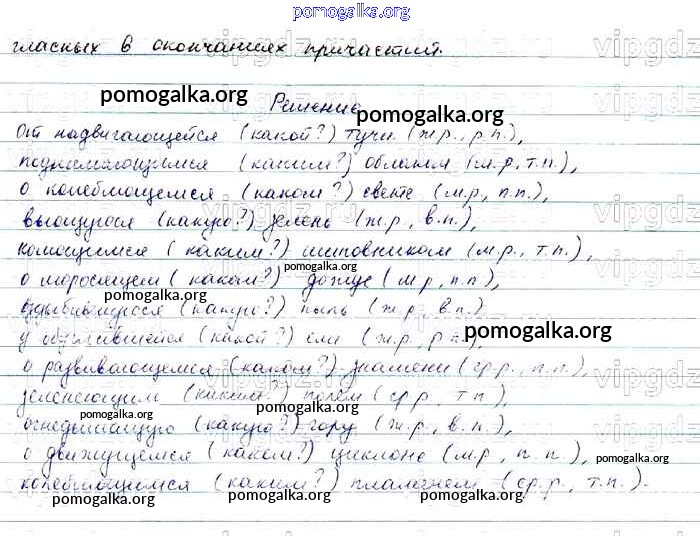 pomogalka.org
гласных в окончаниях причастий.
pomogalka.org Решение pomogalka.org
От надвигающейся (какой?) тучи (ж.р., р.п.),
поднимающимся (каким?) облаком (с.р., т.п.),
о колеблющемся (каком?) свете (м.р., п.п.),
вьющуюся (какую?) зелень (ж.р., в.п.),
колющимся (каким?) шиповником (м.р., т.п.),
о моросящем (каком?) дожде (м.р., п.п.),
pomogalka.org
pomogalka.org
(какую?) пыль (ж.р., в.п.)
у (какой?) ели (ж.р., р.п.), pomogalka.org
о развивающемся (каком?) знамени (ср.р., п.п.),
зеленеющим (каким?) полем (ср.р., т.п.),
pomogalka.org pomogalka.org
огнедышащую (какую?) гору (ж.р., в.п.),
о движущемся (каком?) циклоне (м.р., п.п.),
pomogalka.org pomogalka.org
колеблющимся (каким?) пламенем (ср.р., т.п.).
pomogalka.org pomogalka.org pomogalka.org
vipgdz